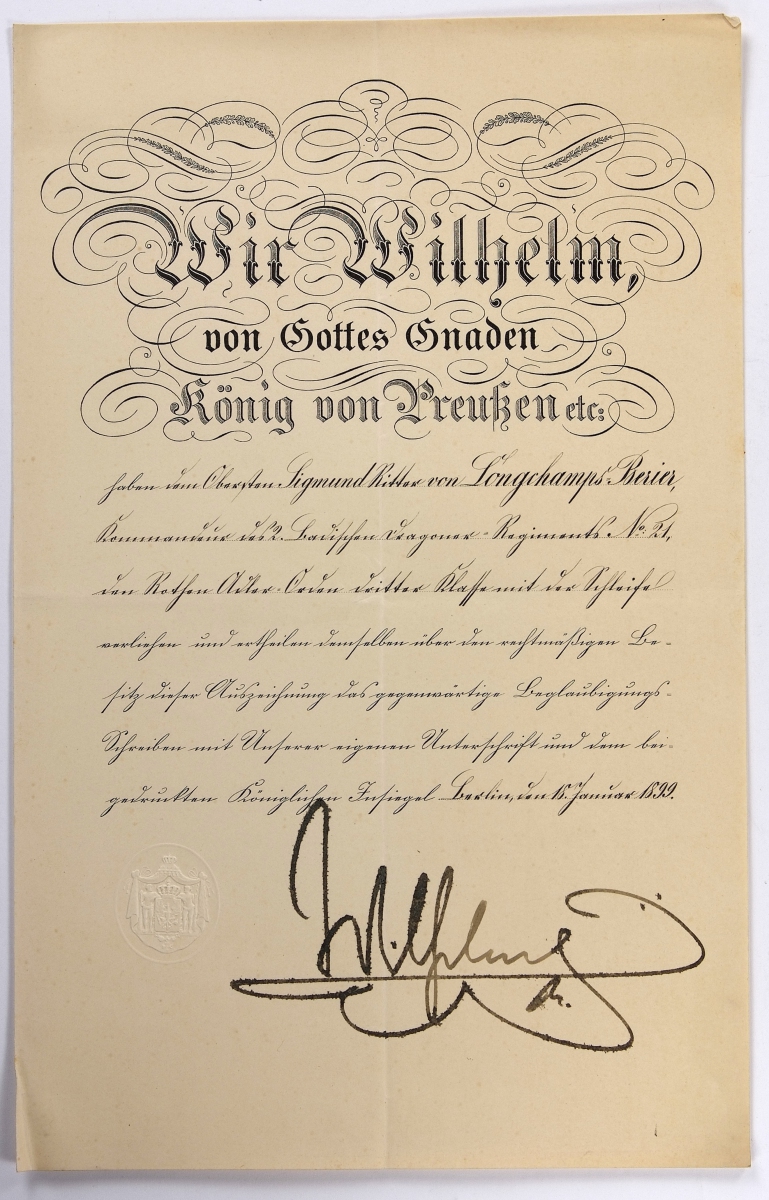 Wir Wilhelm,
von Gottes Gnaden
König von Preußen etc:
haben dem Obersten Sigmund Ritter von Longchamps-Berier,
Kommandeur des 2. Badischen Dragoner-Regiments No. 21,
den Rothen Adler-Orden dritter Klasse mit der Schleife
verliehen und ertheilen demselben über den rechtmäßigen Be-
sitz dieser Auszeichnung das gegenwärtige Beglaubigungs-
Schreiben mit Unserer eigenen Unterschrift und dem bei-
gedruckten Königlichen Insiegel. Berlin, den 18. Januar 1899.
Wilhelm
R.